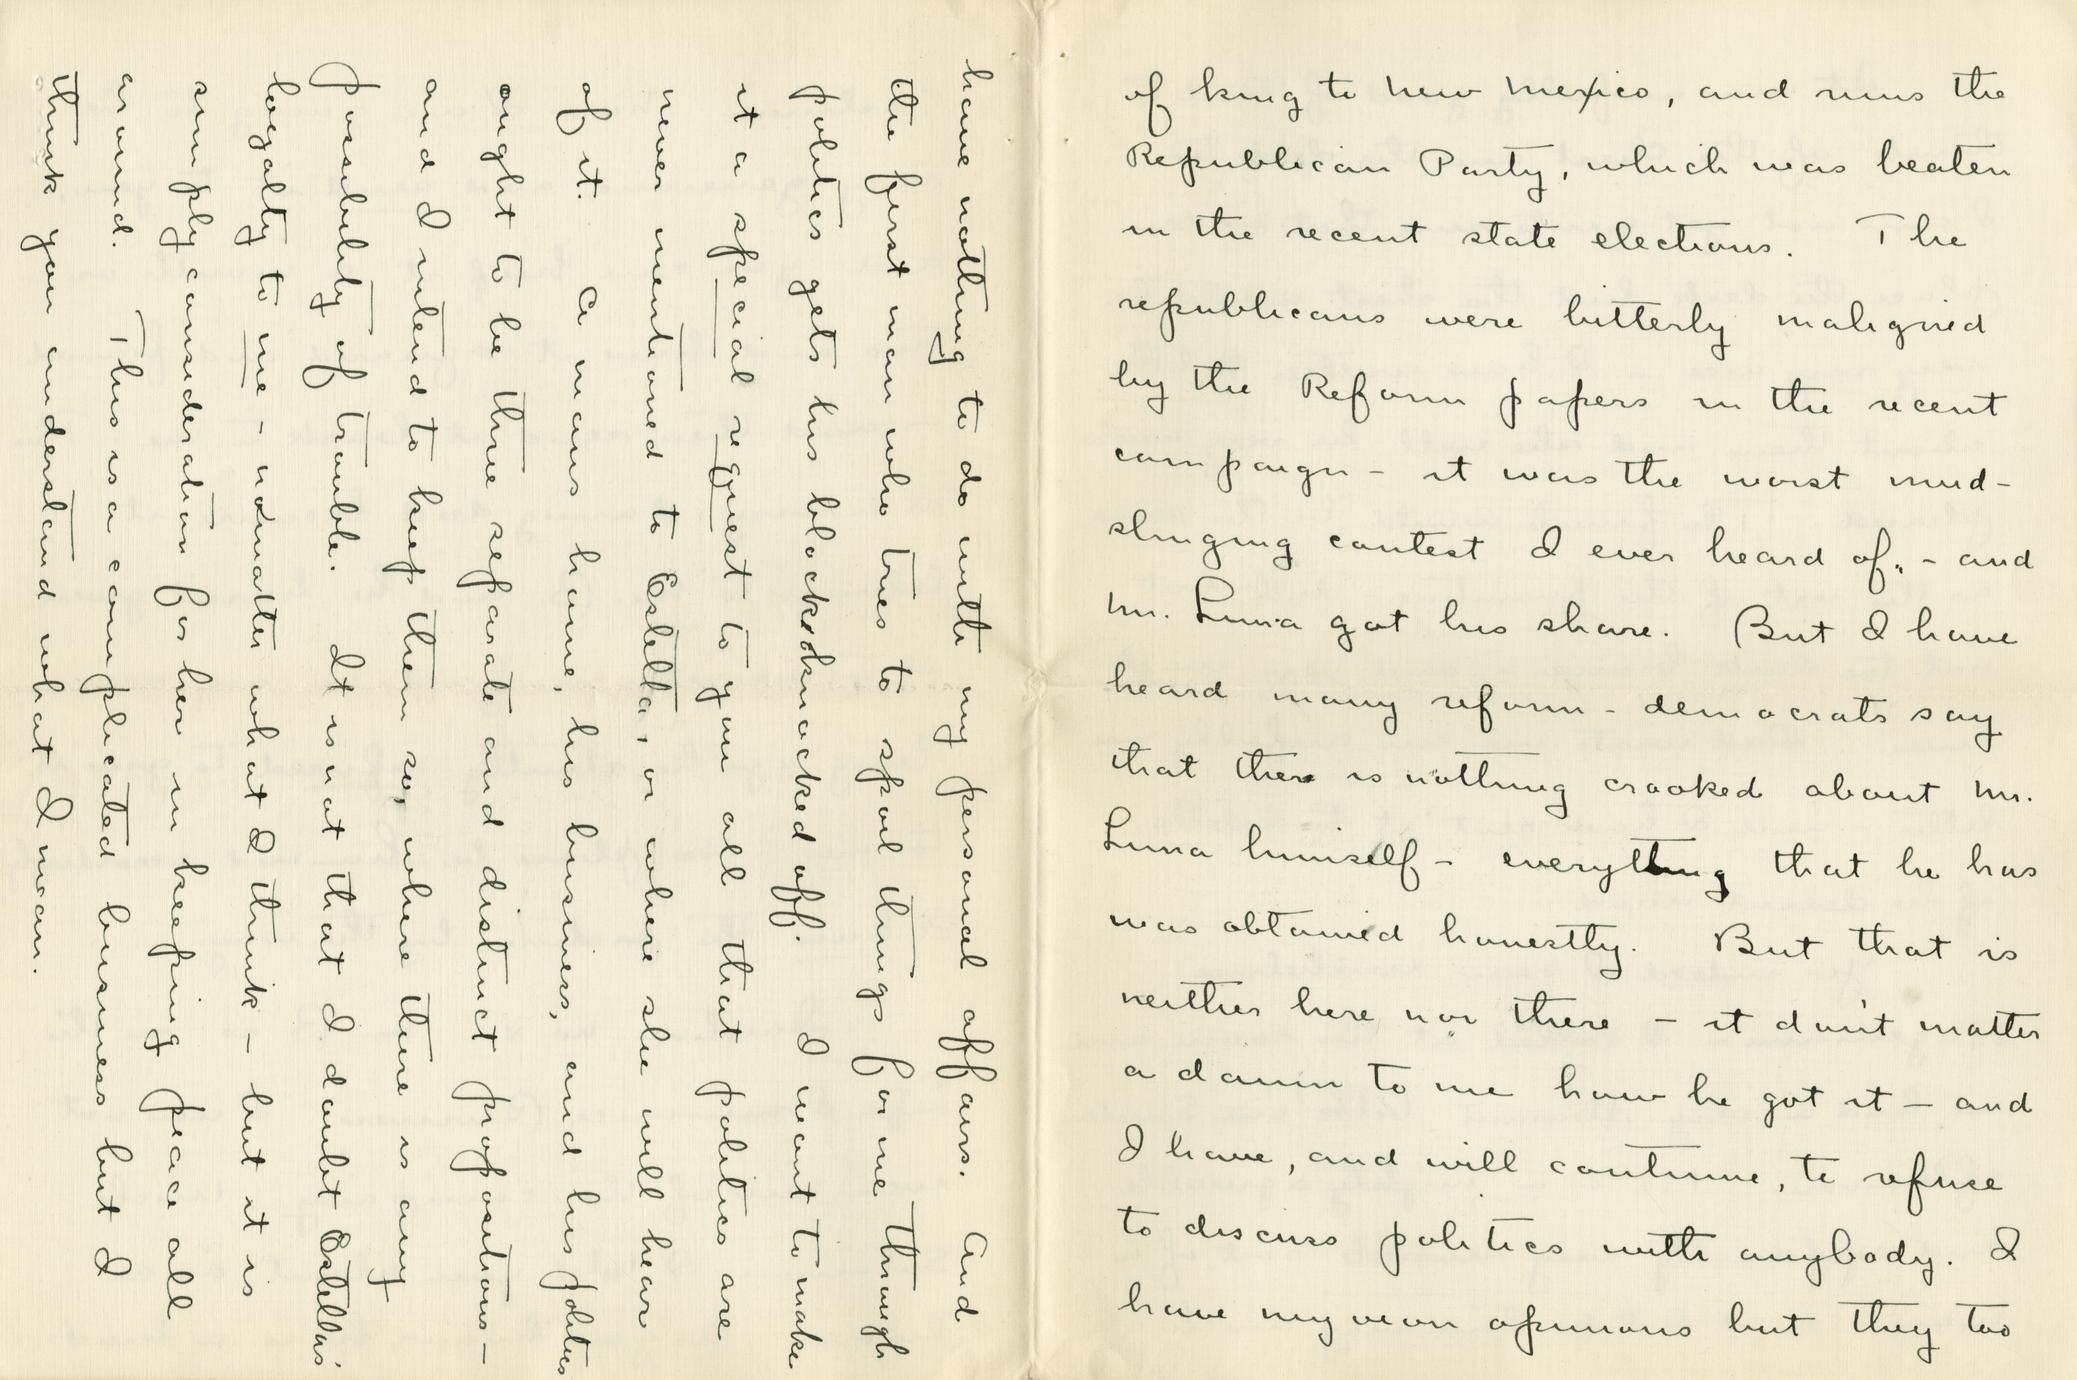 of king to New Mexico, and runs the
Republican Party, which was beaten
in the recent state elections. The
republicans were bitterly maligned
by the Reform papers in the recent
campaign - it was the worst mud-
slinging contest I ever heard of, - and
Mr. Luna got his share. But I have
heard many reform-democrats say
that there is nothing crooked about Mr.
Luna himself - everything that he has
was obtained honestly. But that is
neither here nor there - it don't matter
a damn to me how he got it - and
I have, and will continue, to refuse
to discuss politics with anybody. I
have my own opinions but they too
have nothing to do with my personal affairs. And
the first man who tries to spoil things for me through
politics gets his block knocked off. I want to make
it a special request to you all that politics are
never mentioned to Estella, or where she will hear
of it. A mans home, his business, and his politics
ought to be three separate and distinct propositions -
and I intend to keep them so, where there is any
possibility of trouble. It is not that I doubt Estellas'
loyalty to me - no matter what I think - but it is
simply consideration for her in keeping peace all
around. This is a complicated business but I
think you understand what I mean.